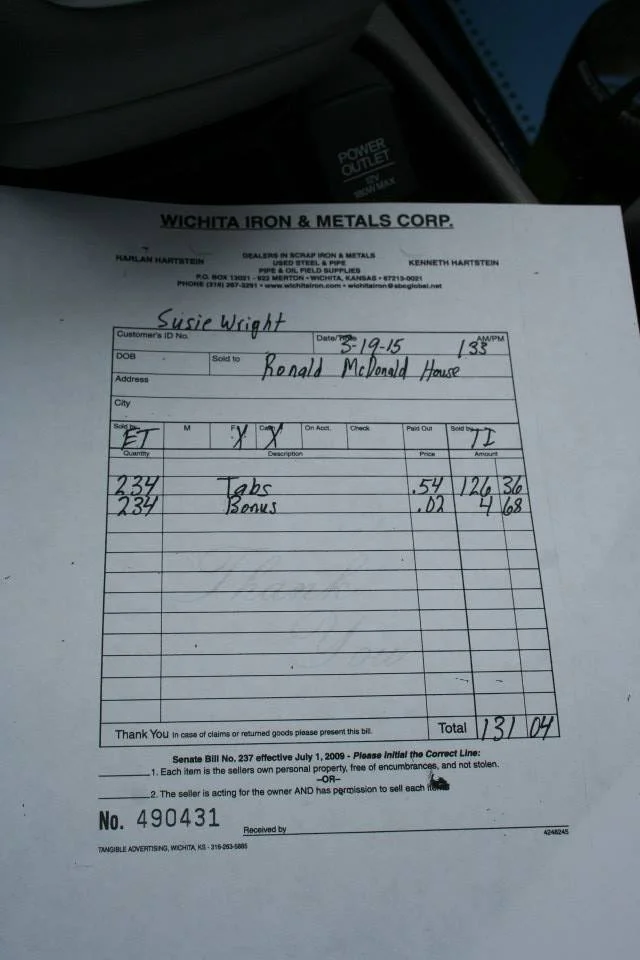 POWER
OUTLET
12V
180W MAX
WICHITA IRON & METALS CORP.
HARLAN HARTSTEIN
DEALERS IN SCRAP IRON & METALS
KENNETH HARTSTEIN
USED STEEL & PIPE
PIPE & OIL FIELD SUPPLIES
P.O. BOX 13021 - 622 MERTON • WICHITA, KANSAS • 67213-0021
PHONE (316) 267-3291 • www.wichitairon.com • wichitairon@sbcglobal.net
Susie Wright
Customer's ID No. Date/Time 3-19-15 133 AM/PM
DOB Sold to Ronald McDonald House
Address
City
Sold by ET M F X Cash X On Acct. Check Paid Out Sold by TI
Quantity Description Price Amount
234 Tabs .54 126 36
234 Bonus .02 4 68
Thank
You
Thank You In case of claims or returned goods please present this bill. Total 131 04
Senate Bill No. 237 effective July 1, 2009 - Please Initial the Correct Line:
1. Each item is the sellers own personal property, free of encumbrances, and not stolen.
-OR-
2. The seller is acting for the owner AND has permission to sell each item
No. 490431 Received by 4248245
TANGIBLE ADVERTISING, WICHITA, KS - 316-263-5885